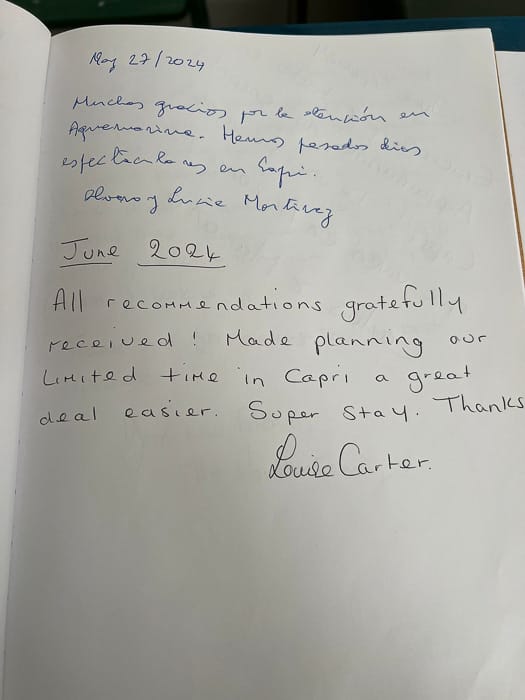 May 27/2024
Muchas gracias por la atención en
Aquamarina. Hemos pasados dias
espectaculares en Capri.
Alvaro y Lucia Martinez
June 2024
All recommendations gratefully
received! Made planning our
Limited time in Capri a great
deal easier. Super stay. Thanks
Louise Carter.